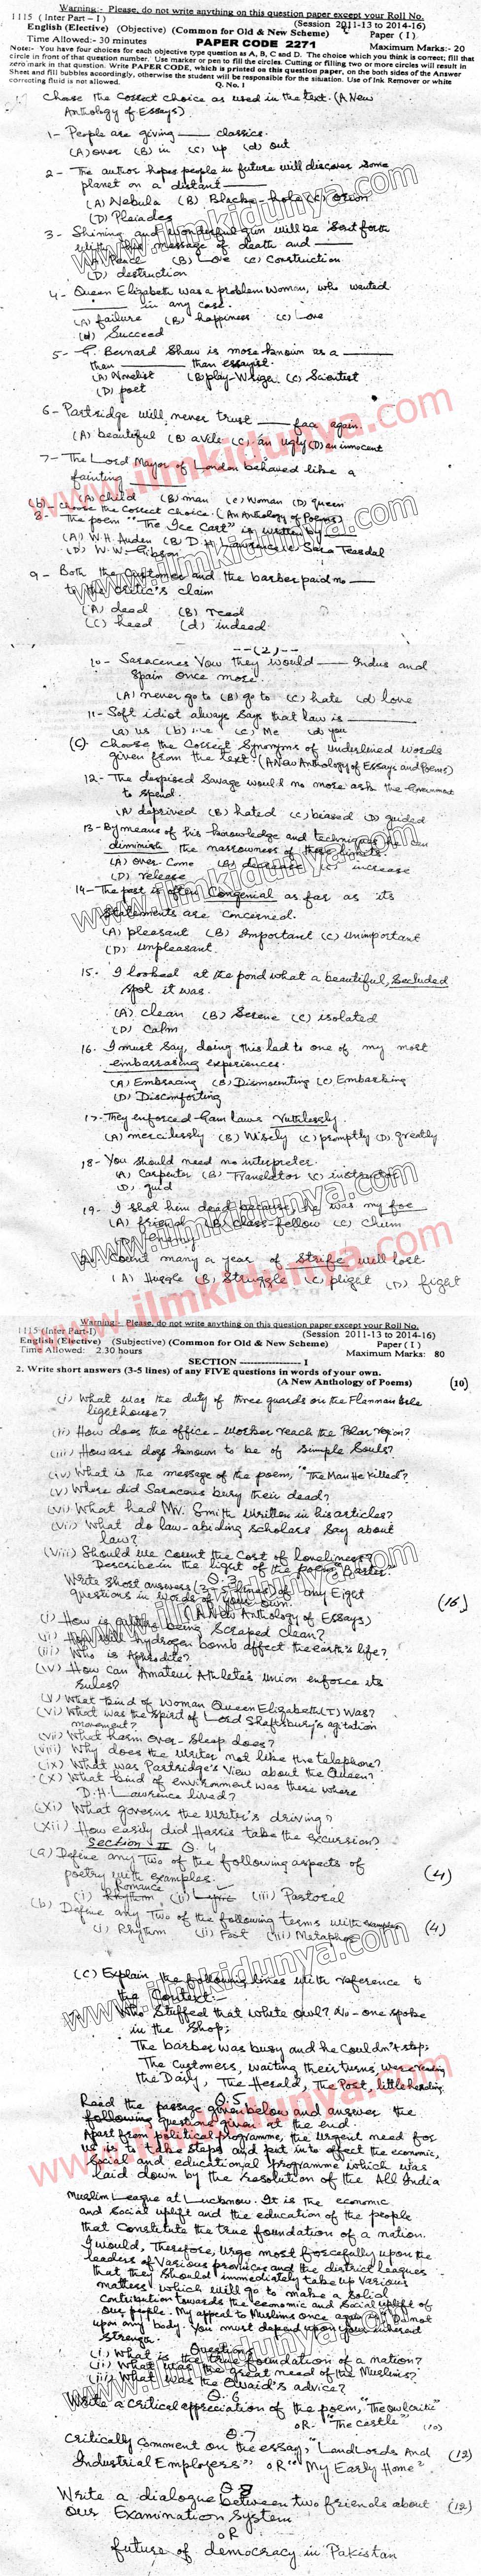 Warning:- Please, do not write anything on this question paper except your Roll No.
1115 (Inter Part – I) (Session 2011-13 to 2014-16)
English (Elective) (Objective) (Common for Old & New Scheme) Paper ( I )
Time Allowed:- 30 minutes PAPER CODE 2271 Maximum Marks:- 20
Note:- You have four choices for each objective type question as A, B, C and D. The choice which you think is correct; fill that
circle in front of that question number. Use marker or pen to fill the circles. Cutting or filling two or more circles will result in
zero mark in that question. Write PAPER CODE, which is printed on this question paper, on the both sides of the Answer
Sheet and fill bubbles accordingly, otherwise the student will be responsible for the situation. Use of Ink Remover or white
correcting fluid is not allowed. Q. No. 1
Choose the Correct choice as used in the text. (A New
Anthology of Essays)
1- People are giving ____ classics.
(A) over (B) in (C) up (d) out
2- The author hopes people in future will discover some
planet on a distant ____
(A) Nebula (B) Blacke-hole (C) orion
(D) Pleiades
3- Shining and wonderful gun will be sent forth
with the message of death and ____
(A) Peace (B) Love (C) Construction
(D) destruction
4- Queen Elizabeth was a problem women, who wanted
____ in any case.
(A) failure (B) happiness (C) Love
(d) Succeed
5- G. Bernard Shaw is more known as a ____
than ____ than essayist.
(A) Novelist (B) play-Wriger (C) Scientist
(D) poet
6- Partridge will never trust ____ face again.
(A) beautiful (B) a vile (C) an ugly (D) an innocent
7- The Lord Mayor of London behaved like a
fainting ____
(A) child (B) man (C) Woman (D) queen
(b) - choose the Correct Choice. (An Anthology of Poems)
8- The poem "The Ice Cart" is written by ____
(A) W.H. Auden (B) D.H. Lawrence (C) Sara Teasdal
(D) W.W. Gibson
9- Both the Customer and the barber paid no ____
to the critic's claim
(A) dead (B) read
(C) heed (d) indeed.
--(2)--
10- Saracenes Vow they would ____ Indus and
Spain once more.
(A) never go to (B) go to (C) hate (d) love
11- Soft idiot always says that law is ____
(a) us (b) (C) Me (d) you
(C) Choose the Correct Synonyms of underlined words
given from the text. (A New Anthology of Essays and Poems)
12- The despised Savage would no more ask the Government
to spend.
(A) deprived (B) hated (C) biased (D) guided
13- By means of his knowledge and techniques he can
diminish the narrowness of these limits.
(A) Over Come (B) decrease (C) increase
(D) release
14- The past is often Congenial as far as its
Statements are concerned.
(A) pleasant (B) Important (C) unimportant
(D) unpleasant.
15. I looked at the pond what a beautiful, Secluded
spot it was.
(A) clean (B) Serene (C) isolated
(D) Calm
16. I must say, doing this led to one of my most
embarrasing experiences.
(A) Embracing (B) Dismounting (C) Embarking
(D) Discomforting
17- They enforced Gain laws ruthlessly
(A) mercilessly (B) Wisely (C) promptly (D) greatly
18- You should need no interpreter.
(A) Carpenter (B) Translator (C) instructor
(D) guid
19- I shot him dead because he was my foe
(A) friend (B) class-fellow (C) Chum
(D) enemy
20- Count many a year of Strife well lost.
(A) Huggle (B) Struggle (C) plight (D) fight
Warning:- Please, do not write anything on this question paper except your Roll No.
1115 (Inter Part-I) (Session 2011-13 to 2014-16)
English (Elective) (Subjective) (Common for Old & New Scheme) Paper ( I )
Time Allowed: 2.30 hours Maximum Marks: 80
SECTION ---------------- I
2. Write short answers (3-5 lines) of any FIVE questions in words of your own.
(A New Anthology of Poems) (10)
(i) What was the duty of three guards on the Flannan Isle
lighthouse?
(ii) How does the office-worker reach the Polar region?
(iii) How are dogs known to be of simple Souls?
(iv) What is the message of the poem, "The Man He Killed"?
(v) Where did Saracous bury their dead?
(vi) What had Mr. Smith written in his articles?
(vii) What do law-abiding scholars say about
law?
(viii) Should we count the Cost of loveliness?
Describe in the light of the poem "Barter."
Q.3
Write Short answers (3-5 lines) of any Eight
questions in words of your own.
(A New Anthology of Essays) (16)
(i) How is gutter being Scraped clean?
(ii) How will hydrogen bomb affect the earth's life?
(iii) Who is Aphrodite?
(iv) How can Amateur Athletes union enforce its
rules?
(v) What kind of Woman Queen Elizabeth (I) Was?
(vi) What was the spirit of Lord Shaftsbury's agitation
movement?
(vii) What harm over-sleep does?
(viii) Why does the writer not like the telaphone?
(ix) What was Partridge's View about the Queen?
(x) What kind of environment was there where
D.H. Lawrence lived?
(xi) What governs the writer's driving?
(xii) How easily did Harris take the excursion?
Section II Q. 4
(a) Define any Two of the following aspects of
poetry with examples. (4)
(i) Romance (ii) Lyric (iii) Pastoral
(b) Define any Two of the following terms with examples (4)
(i) Rhythm (ii) Foot (iii) Metaphor
(C) Explain the following lines with reference to
the Context:-
"Who Stuffed that white owl? No-one spoke
in the Shop;
The barber was busy and he couldn't stop;
The Customers, waiting their turns, were reading
the Daily, The Herald, The Post, little heeding.
Q.5
Read the passage given below and answer the
following questions given at the end.
Apart from political programme, the urgent need for
us is to take steps and put into effect the economic,
Social and educational programme which was
laid down by the resolution of the All India
Muslim League at Lucknow. It is the economic
and social uplift and the education of the people
that Constitute the true foundation of a nation.
I would, Therefore, urge most forcefully upon the
leaders of Various provinces and the district leagues
that they should immediately take up Various
matters which will go to make a Solid
Contribution towards the economic and Social uplift of
our people. My appeal to Muslims once again Do not
upon any body. You must depend upon your inherent
Strength.
Questions
(i) What is the true foundation of a nation?
(ii) What was the great need of the Muslims?
(iii) What was the Quaid's advice?
Q.6
Write a critical appreciation of the poem, "The Owl critic"
OR- "The Castle" (10)
Q.7
Critically comment on the essay: "LandLords And
Industrial Employers" OR "My Early Home" (12)
Q.8
Write a dialogue between two friends about
our Examination System. (12)
OR
future of democracy in Pakistan
www.ilmkidunya.com